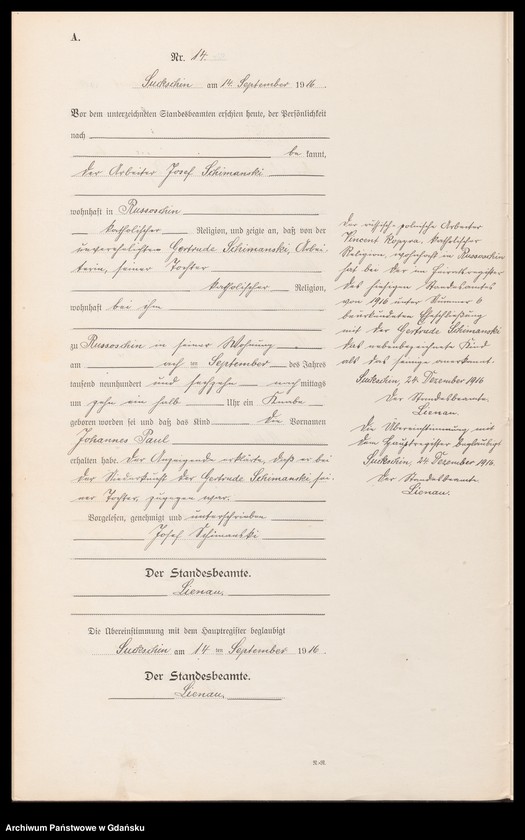 A.
Nr. 14.
Suckschin am 14. September 1916.
Vor dem unterzeichneten Standesbeamten erschien heute, der Persönlichkeit
nach
be kannt,
der Arbeiter Josef Schimanski
wohnhaft in Russoschin
katholischer Religion, und zeigte an, daß von der
unverehelichten Gertrude Schimanski, Arbei-
terin, seiner Tochter
katholischer Religion,
wohnhaft bei ihm
zu Russoschin in seiner Wohnung
am ten September des Jahres
tausend neunhundert und sechzehn nachmittags
um zehn ein halb Uhr ein Knabe
geboren worden sei und daß das Kind die Vornamen
Johannes Paul
erhalten habe. Der Anzeigende erklärte, daß er bei
der Niederkunft der Gertrude Schimanski, sei-
ner Tochter, zugegen war.
Vorgelesen, genehmigt und unterschrieben
Josef Schimanski
Der Standesbeamte.
Lienau.
Die Übereinstimmung mit dem Hauptregister beglaubigt
Suckschin am 14 ten September 1916.
Der Standesbeamte.
Lienau.
Der russische polnische Arbeiter
Vincent Kopyra, katholischer
Religion, wohnhaft in Russoschin
hat bei der im Heiratsregister
des hiesigen Standesamtes
von 1916 unter Nummer 6
beurkundeten Eheschließung
mit der Gertrude Schimanski
das nebenbezeichnete Kind
als das seinige anerkannt.
Suckschin, 24. Dezember 1916
Der Standesbeamte.
Lienau.
Die Übereinstimmung mit
dem Hauptregister beglaubigt
Suckschin, 24. Dezember 1916.
Der Standesbeamte.
Lienau.
Archiwum Państwowe w Gdańsku